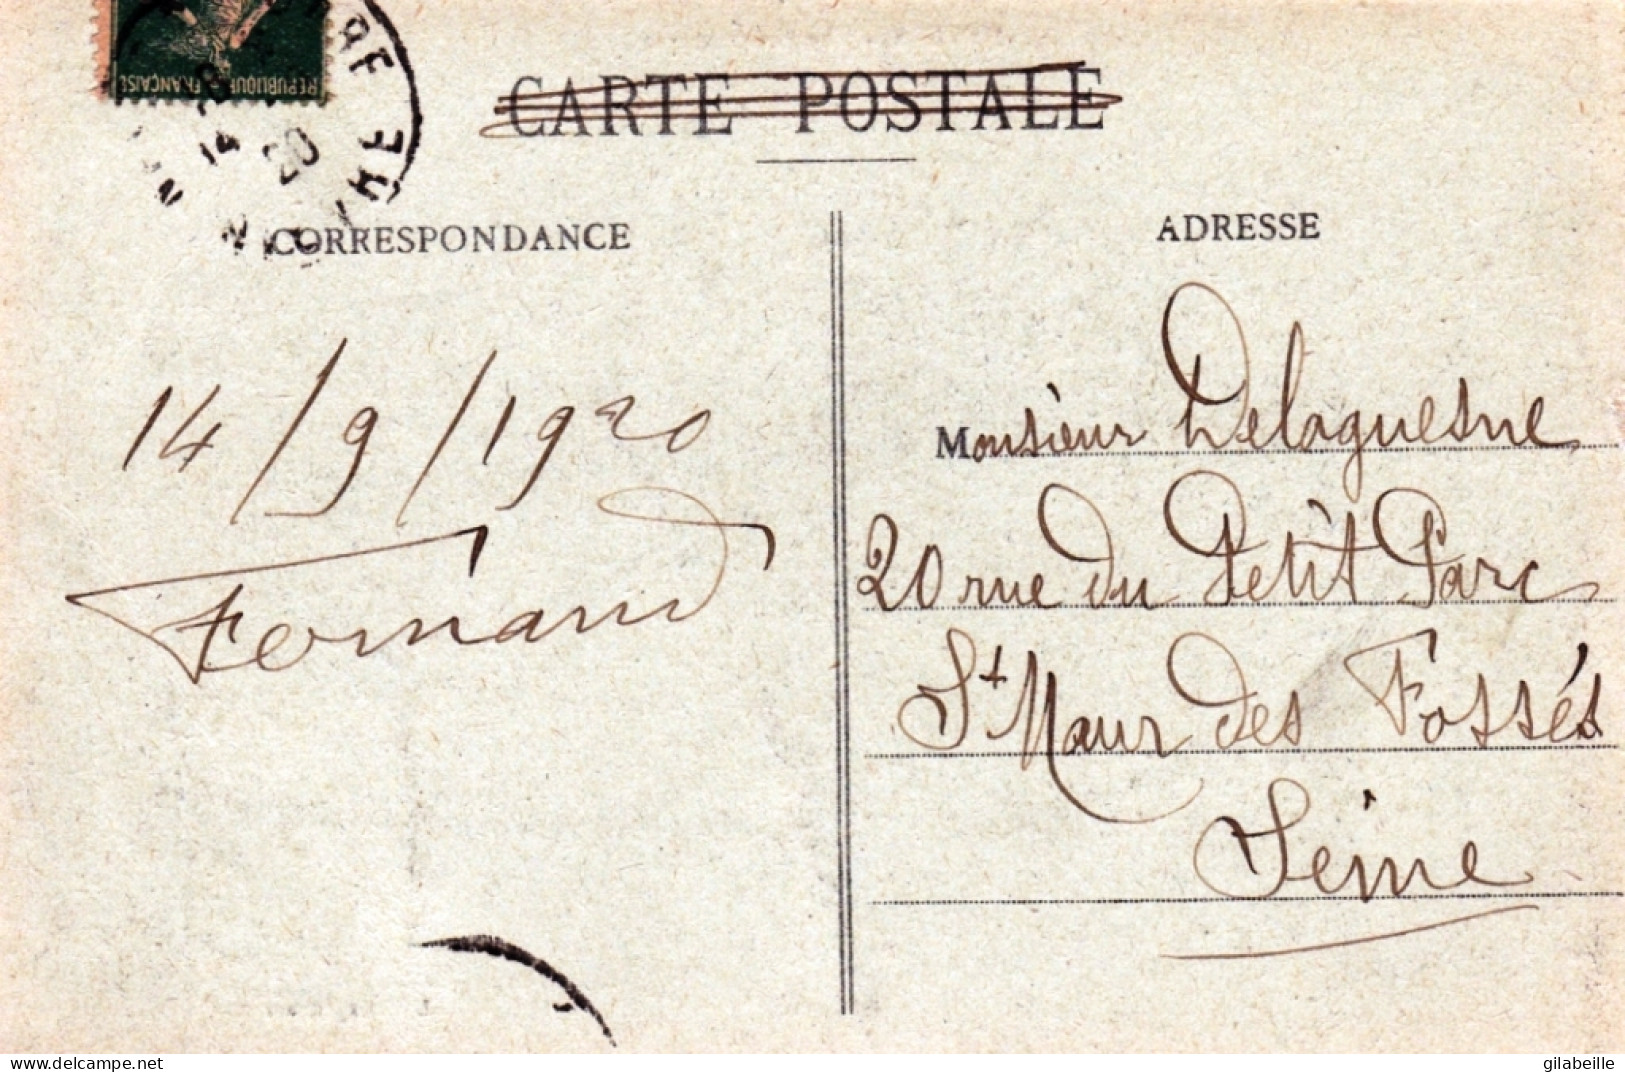 REPUBLIQUE FRANÇAISE
14
20
CARTE POSTALE
CORRESPONDANCE
14/9/1920
Fernand
ADRESSE
Monsieur Delaguesne
20 rue du Petit Parc
St Maur des Fossés
Seine
https://www.delcampe.net
gilabeille